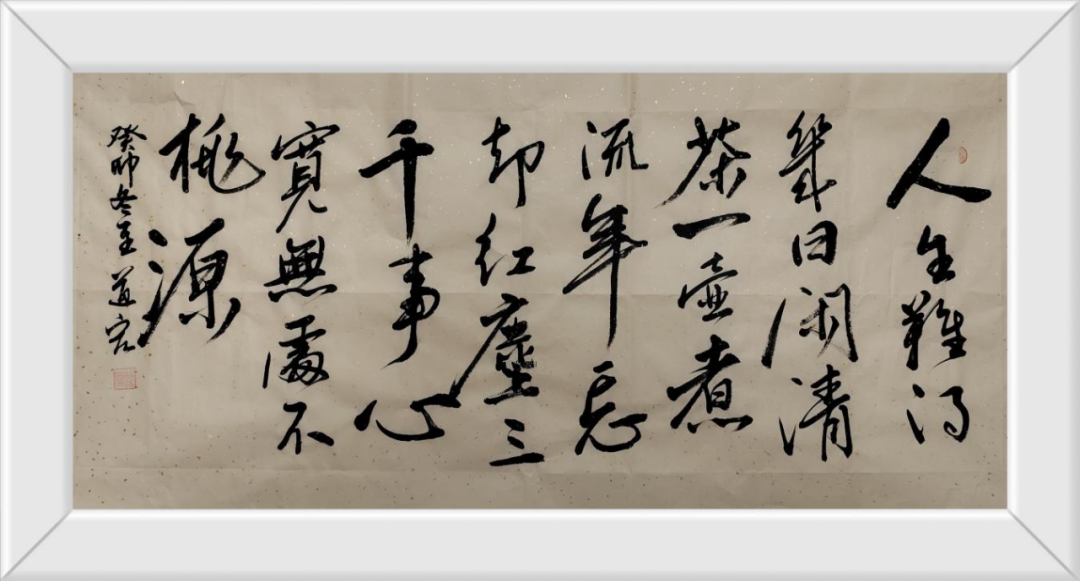 人生難得
幾日閑清
茶一壺煮
流年忘
却紅塵三
千事心
寬無處不
桃源
癸卯冬至道宏